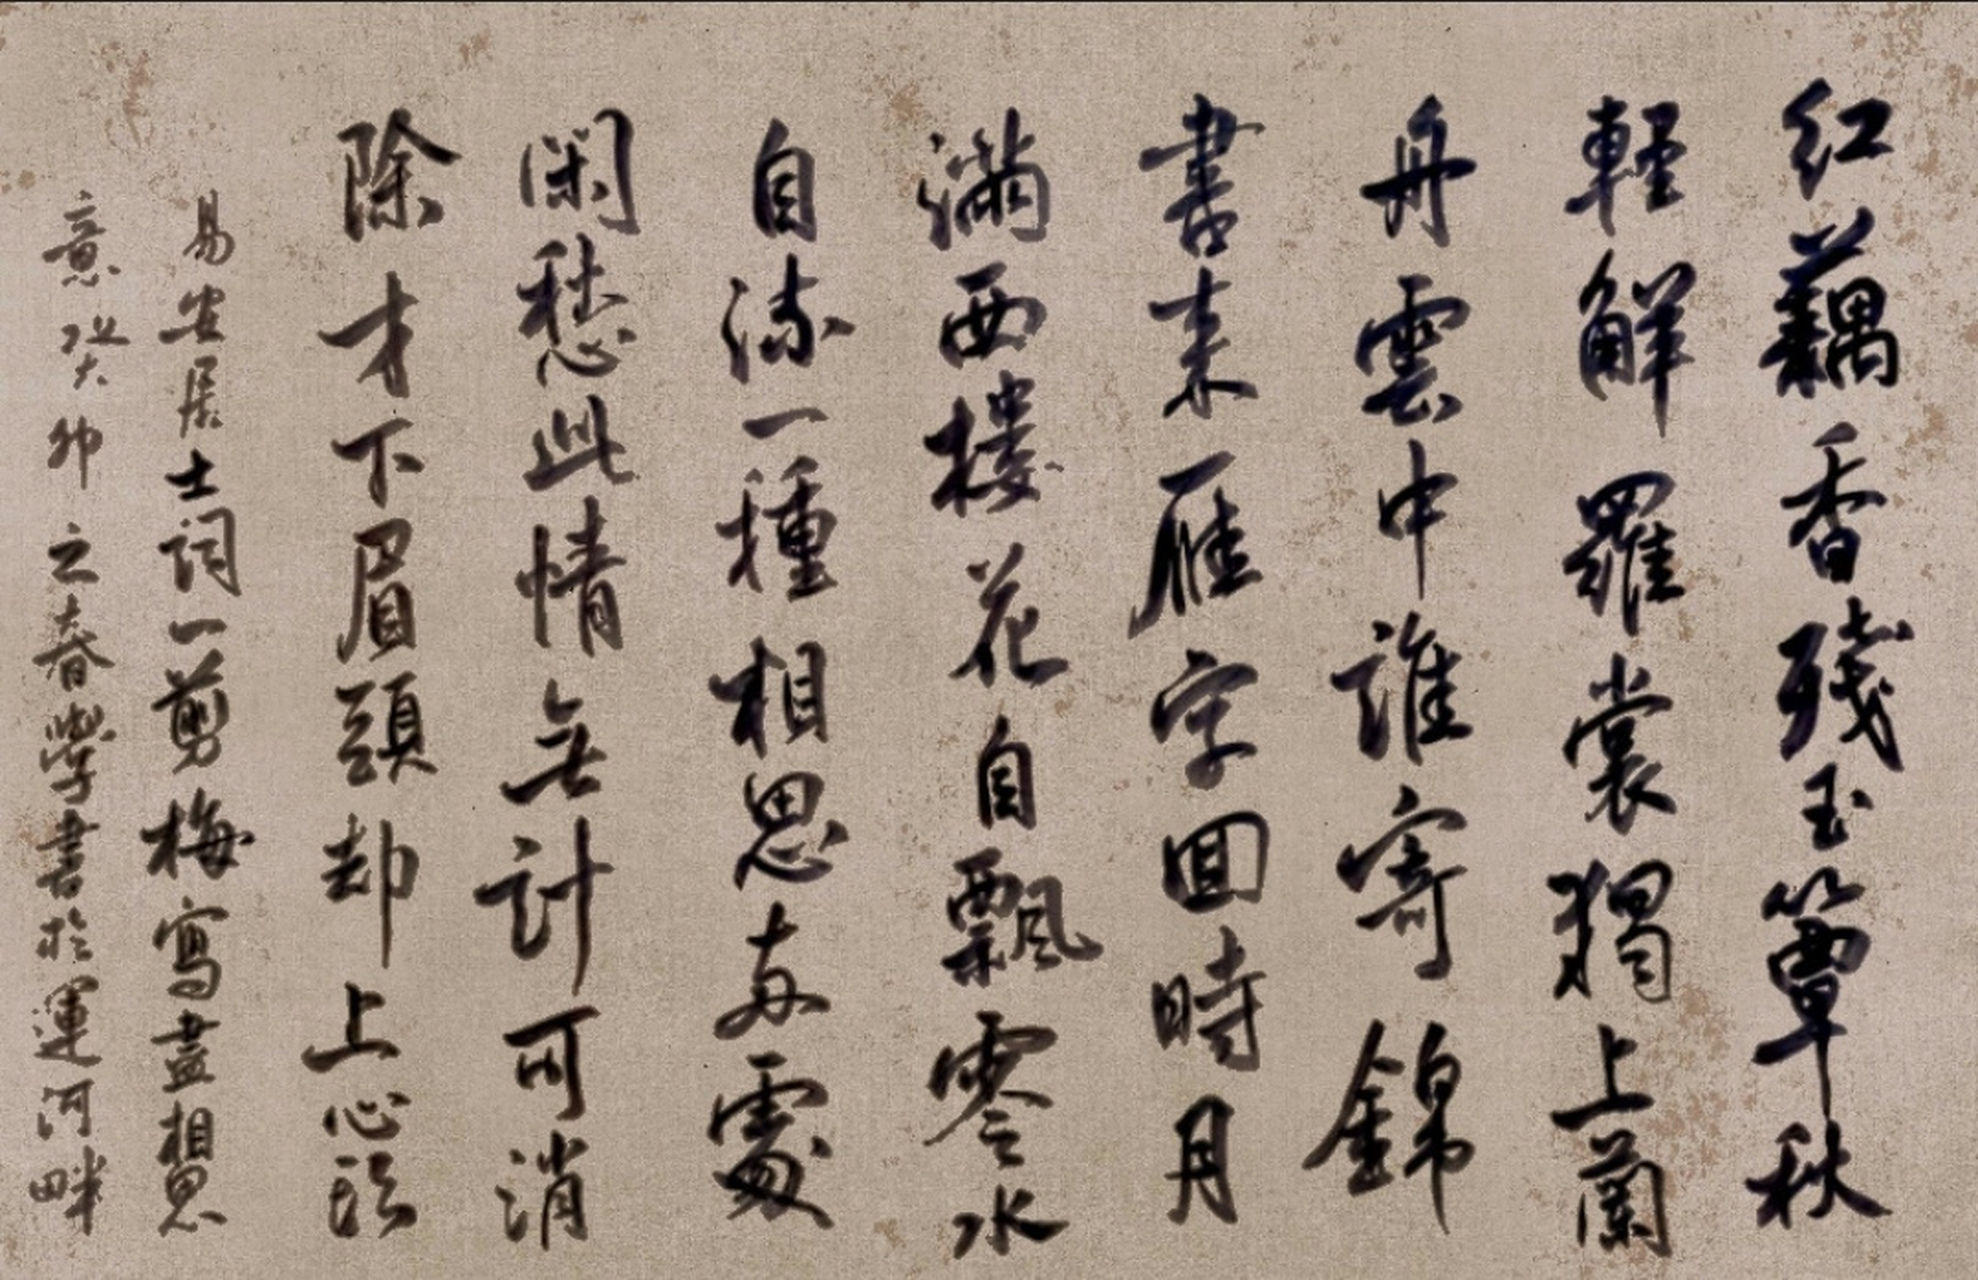 红藕香残玉簟秋
輕解羅裳獨上蘭
舟雲中誰寄錦
書来雁字回時月
滿西樓花自飄零水
自流一種相思兩處
閑愁此情無計可消
除才下眉頭却上心頭
易安居士詞一剪梅寫盡相思
意癸卯之春學書於運河畔